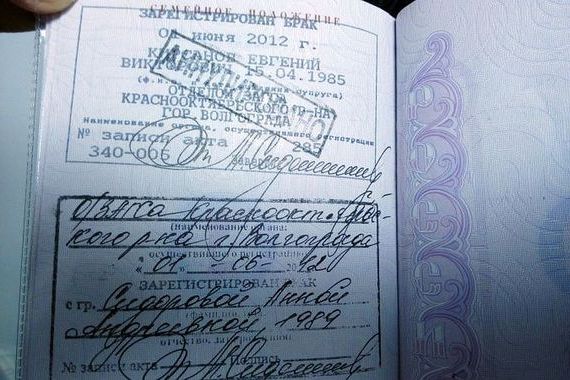 СЕМЕЙНОЕ ПОЛОЖЕНИЕ
ЗАРЕГИСТРИРОВАН БРАК
01 ИЮНЯ 2012 г.
ЕВГЕНИЙ
15.04.1985
ОТДЕЛОМ ЗАГСА
КРАСНООКТЯБРЬСКОГО Р-НА
ГОР. ВОЛГОГРАДА
наименование органа, осуществившего регистрации
№ записи акта 285
340-006
О/ЗАГСа Краснооктябрьс-
кого р-на г. Волгограда
(наименование органа:
осуществившего регистрацию)
"01" - 06 - 2012
ЗАРЕГИСТРИРОВАН БРАК
с гр. Сидоровой Анной
Андреевной, 1989
отчество, дата рождения)
№ записи акта Подпись